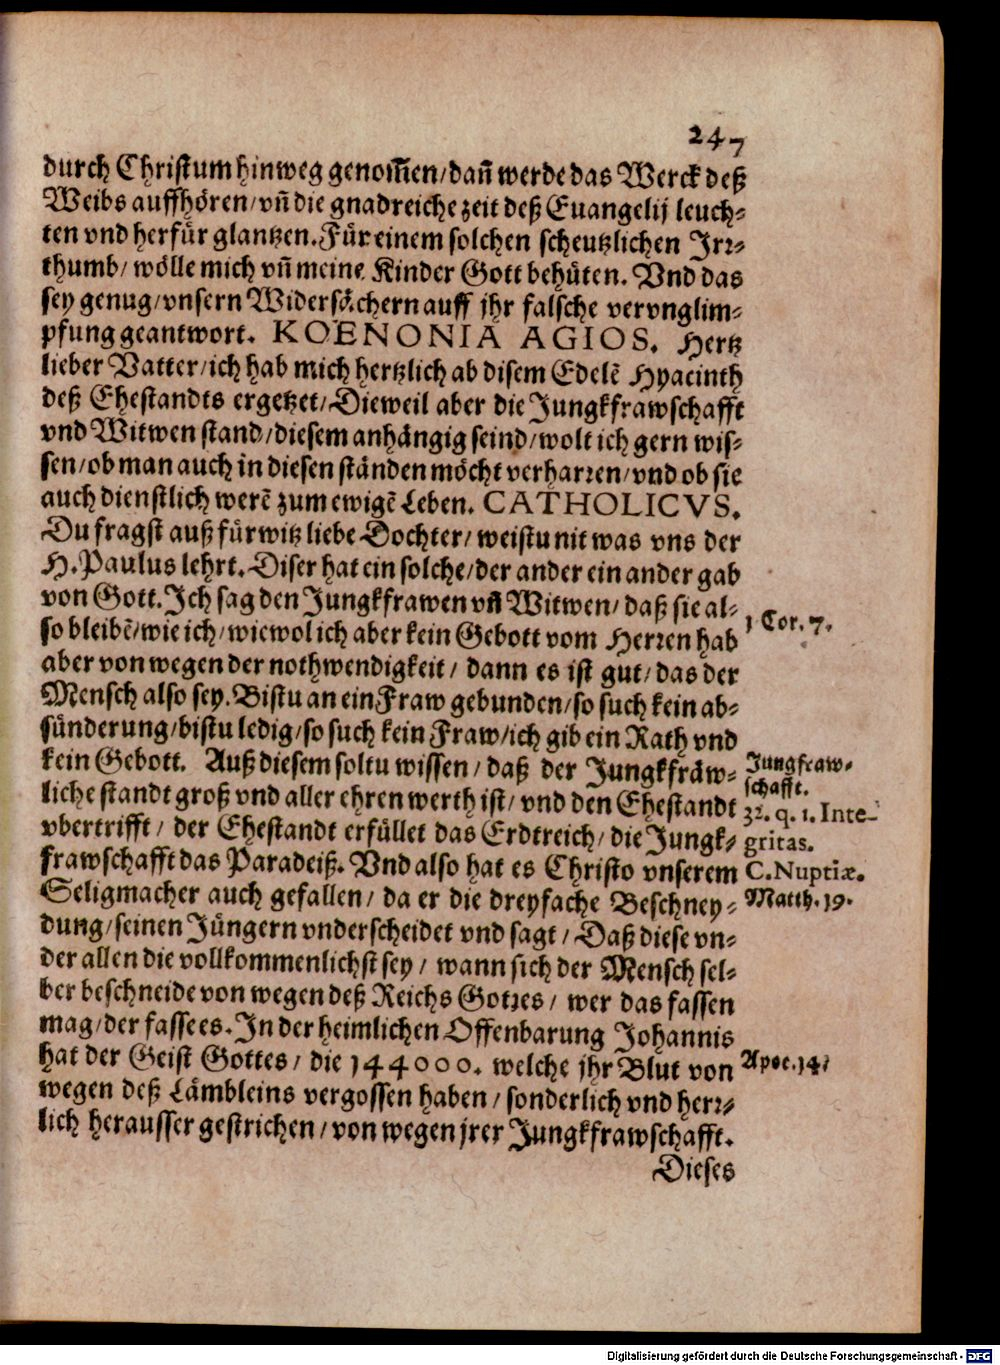 247
durch Christum hinweg genom̃en/dañ werde das Werck deß
Weibs auffhören/vñ die gnadreiche zeit deß Euangelij leuch-
ten vnd herfür glantzen. Für einem solchen scheutzlichen Irr-
thumb/ wölle mich vñ meine Kinder Gott behüten. Vnd das
sey genug/vnsern Widersächern auff jhr falsche vervnglim-
pfung geantwort. KOENONIA AGIOS. Hertz
lieber Vatter/ich hab mich hertzlich ab disem Edelẽ Hyacinth
deß Ehestandts ergetzet/Dieweil aber die Jungkfrawschafft
vnd Witwen stand/diesem anhängig seind/wolt ich gern wis-
sen/ob man auch in diesen ständen möcht verharren/vnd ob sie
auch dienstlich werẽ zum ewigẽ Leben. CATHOLICVS.
Du fragst auß fürwitz liebe Dochter/ weistu nit was vns der
H. Paulus lehrt. Diser hat ein solche/der ander ein ander gab
von Gott. Ich sag den Jungkfrawen vñ Witwen/ daß sie al-
so bleibẽ/wie ich/wiewol ich aber kein Gebott vom Herren hab
1 Cor. 7.
aber von wegen der nothwendigkeit/ dann es ist gut/das der
Mensch also sey. Bistu an ein Fraw gebunden/so such kein ab-
sünderung/bistu ledig/so such kein Fraw/ich gib ein Rath vnd
kein Gebott. Auß diesem soltu wissen/ daß der Jungkfräw-
Jungfraw-
schafft.
liche standt groß vnd aller ehren werth ist/ vnd den Ehestandt
32. q. 1. Inte-
vbertrifft/ der Ehestandt erfüllet das Erdtreich/die Jungk-
gritas.
frawschafft das Paradeiß. Vnd also hat es Christo vnserem
C. Nuptiæ.
Seligmacher auch gefallen/ da er die dreyfache Beschney-
Matth. 19.
dung/seinen Jüngern vnderscheidet vnd sagt/ Daß diese vn-
der allen die vollkommenlichst sey/ wann sich der Mensch sel-
ber beschneide von wegen deß Reichs Gottes/ wer das fassen
mag/der fasse es. In der heimlichen Offenbarung Johannis
hat der Geist Gottes/ die 144000. welche jhr Blut von
Apoc. 14.
wegen deß Lämbleins vergossen haben/ sonderlich vnd herr-
lich herausser gestrichen/von wegen jrer Jungkfrawschafft.
Dieses
Digitalisierung gefördert durch die Deutsche Forschungsgemeinschaft - DFG